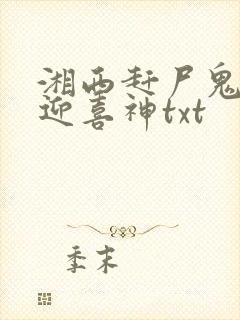 湘西赶尸鬼
迎喜神txt
季末